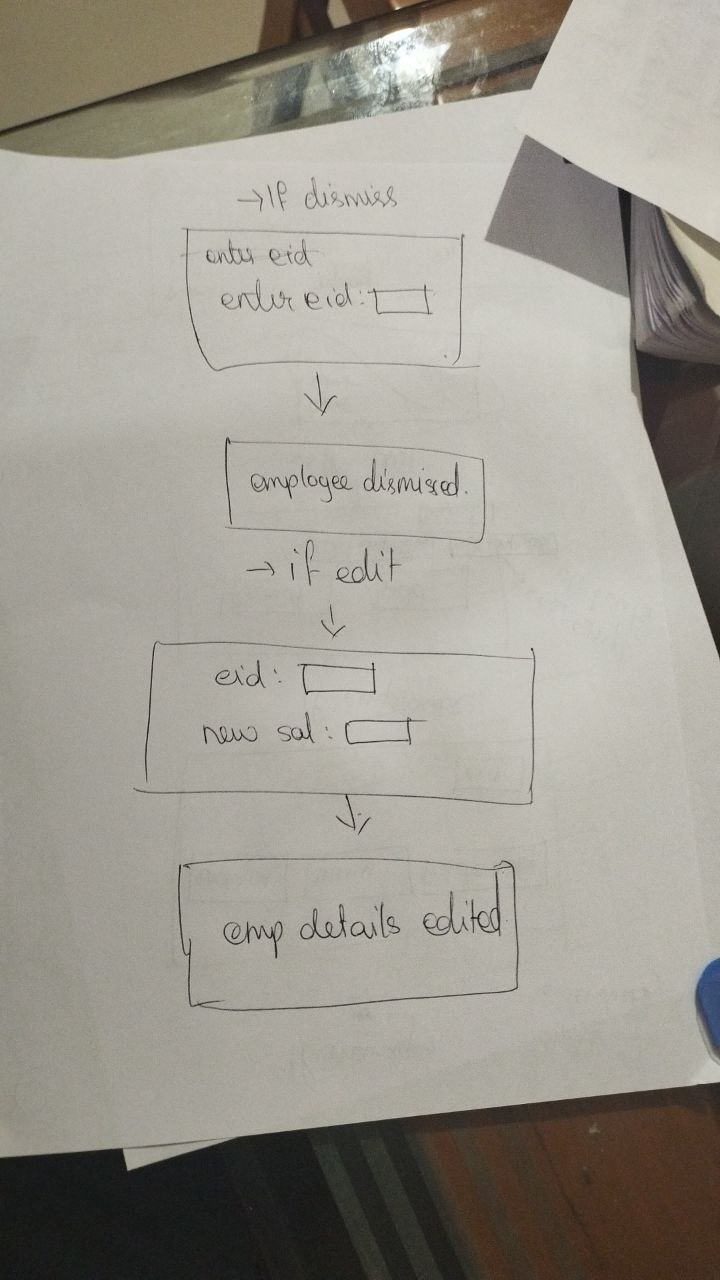 →If dismiss
enter eid
enter eid:
employee dismissed.
→ if edit
eid:
new sal:
emp details edited